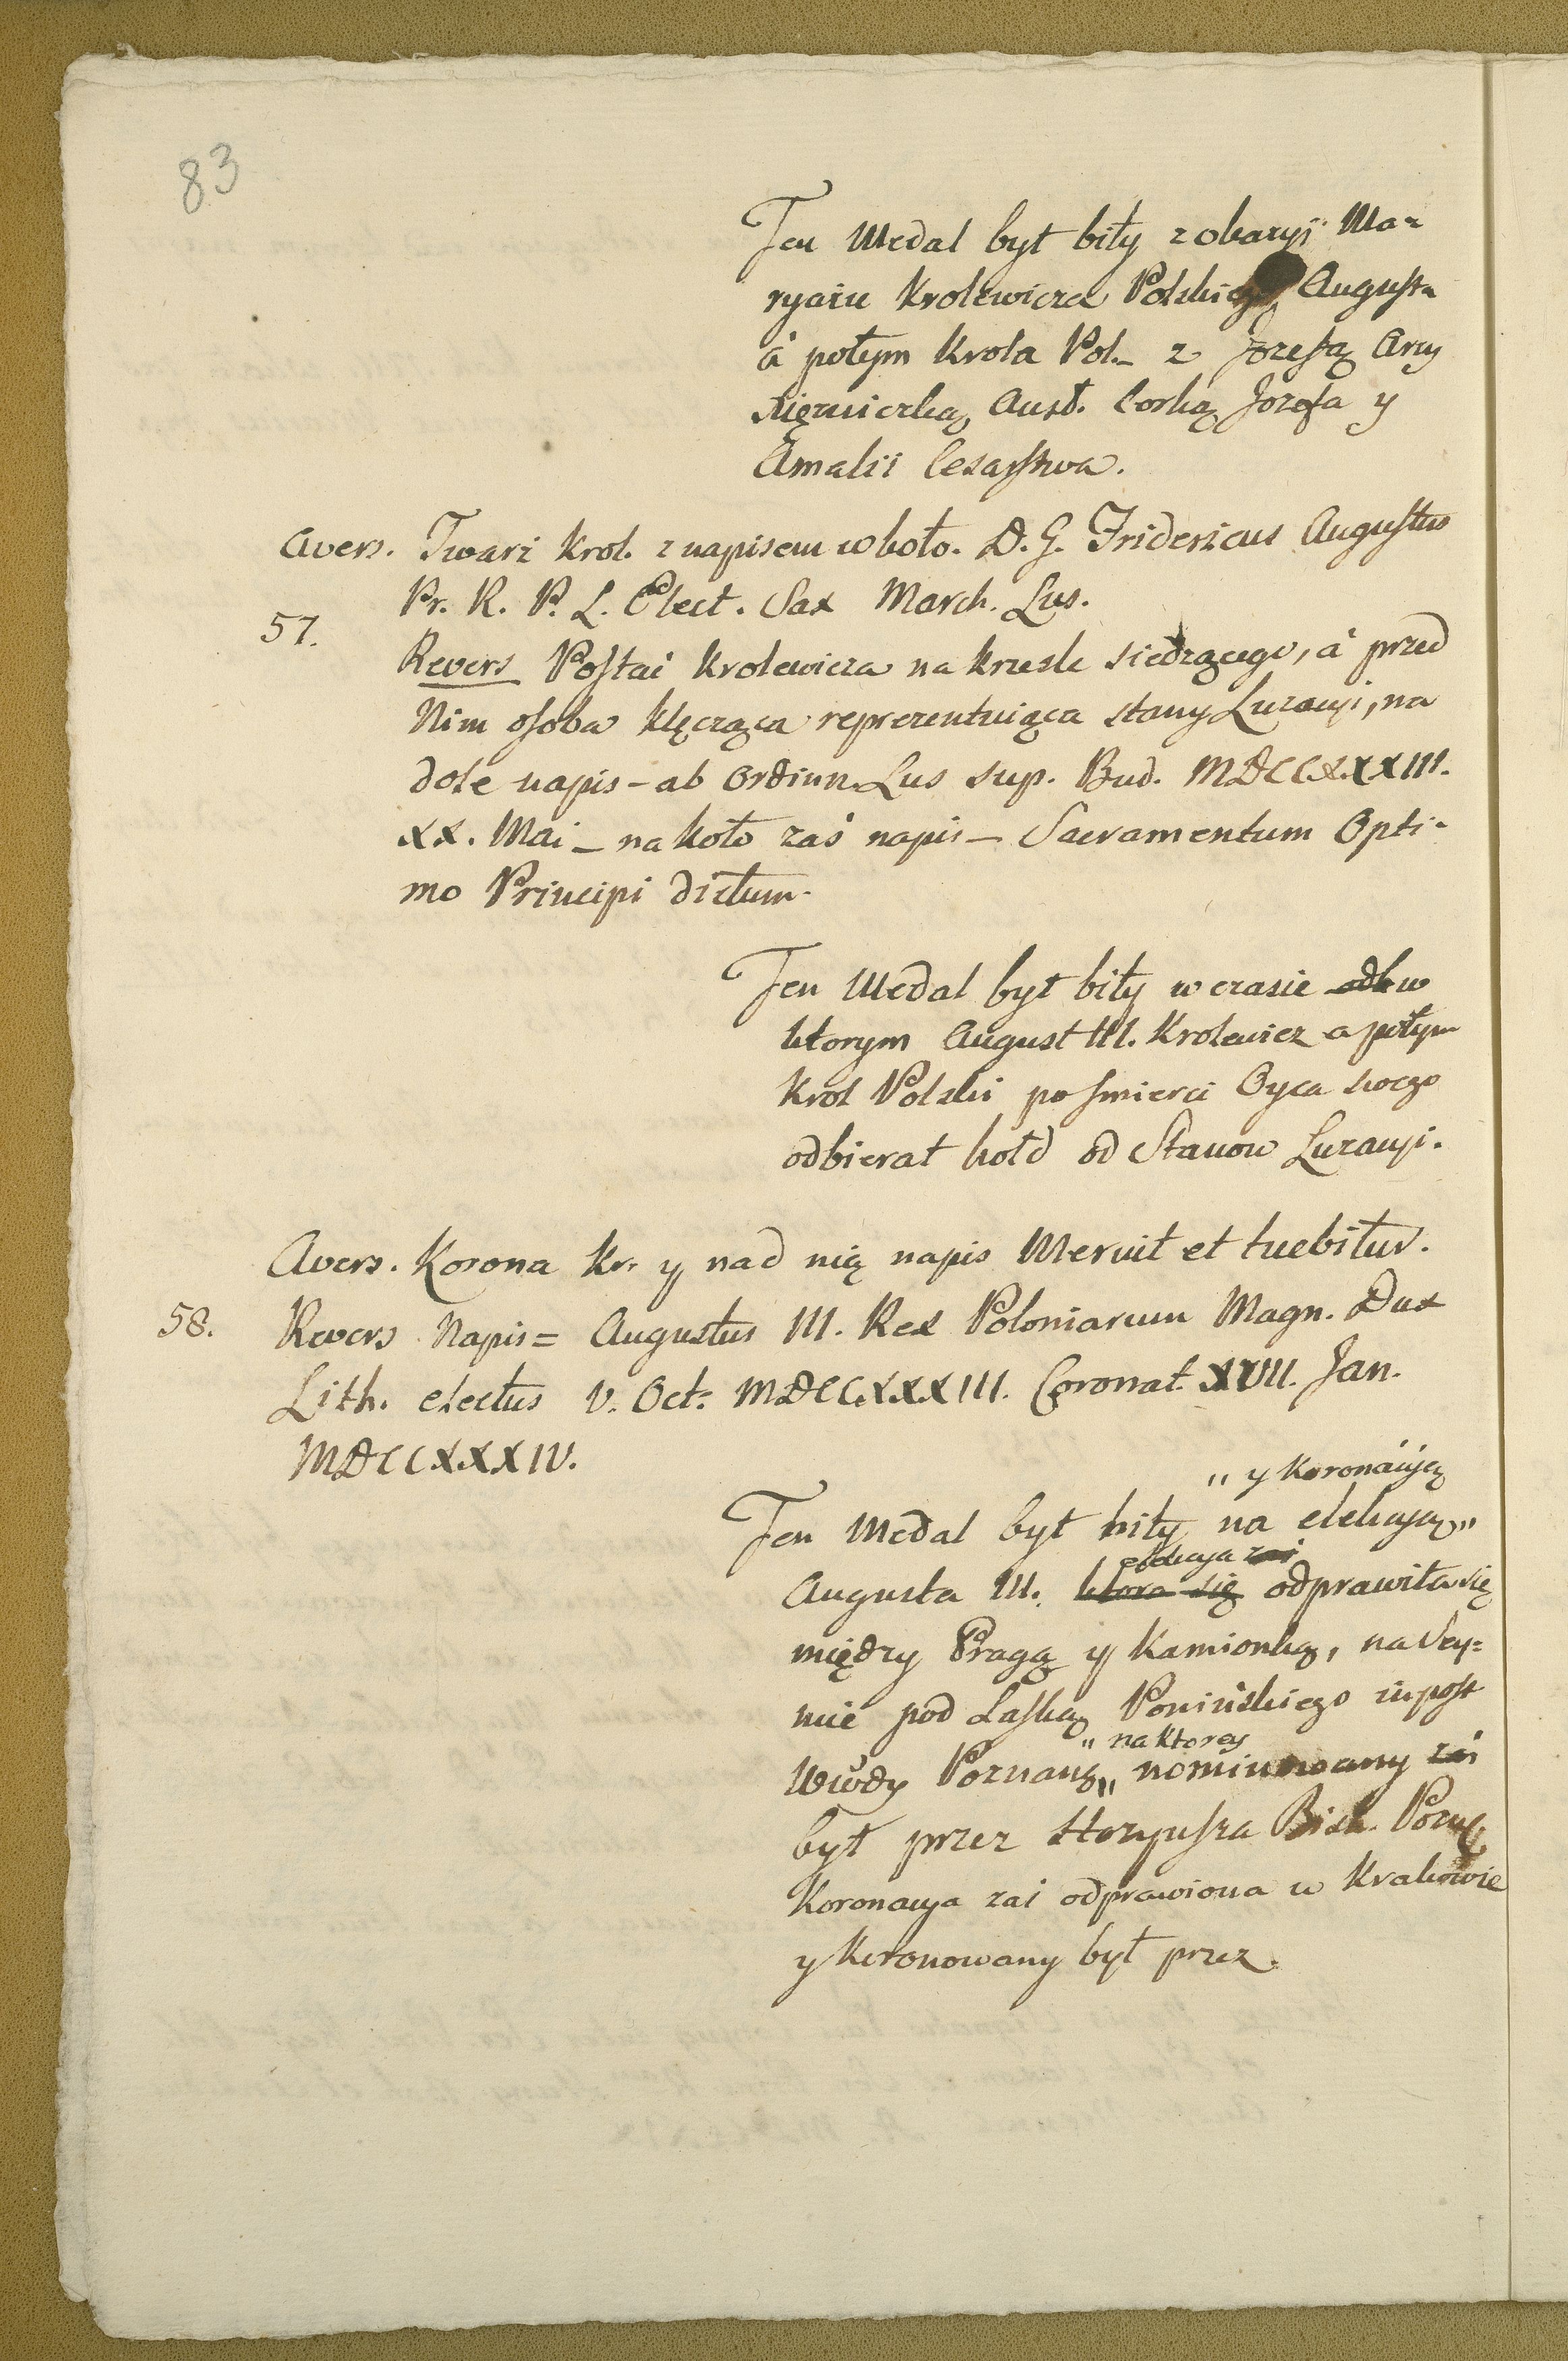 83
Ten Medal był biły z okazyi Ma=
ryażu Krolewicza Polskiego Augusta
á potym Krola Pol. z Jozefą Arcy
xiężniczką Aust. Corką Jozefa y
Amalii Cesarstwa.
Avers. Twarz Krol. z napisem w koło. D. G. Fridericus Augustus
Pr. R. P. L. Elect. Sax March. Lus.
57.
Revers Postać Krolewicza na krzesle siedzącego, á przed
Nim osoba klęcząca reprezentuiąca stany Luzacyi, na
dole napis - ab Ordinn. Lus sup. Bud. MDCCXXXIII.
XX. Mai - na koło zaś napis - Sacramentum Opti=
mo Principi dictum.
Ten Medal był biły w czasie odb w
ktorym August III. Krolewicz a potym
Krol Polski po smierci Oyca swego
odbierał hołd od Stanow Luzacyi.
Avers. Korona Kr. y nad nią napis Meruit et tuebitur.
58. Revers Napis = Augustus III. Rex Poloniarum Magn. Dux
Lith. electus V. Oct. MDCCXXXIII. Coronat. XVII. Jan.
MDCCXXXIV.
" y Koronácyą
Ten Medal był biły na elekcyą "
elekcya zaś
Augusta III. ktora się odprawiła się
między Pragą y Kamionką, na Sey=
mie pod Laską Ponińskiego
" na ktorey
Wwdy Poznans " nominowany zaś
był przez Hozyusza Bisk. Pozn.
Koronacya zaś odprawiona w Krakowie
y Koronowany był przez.